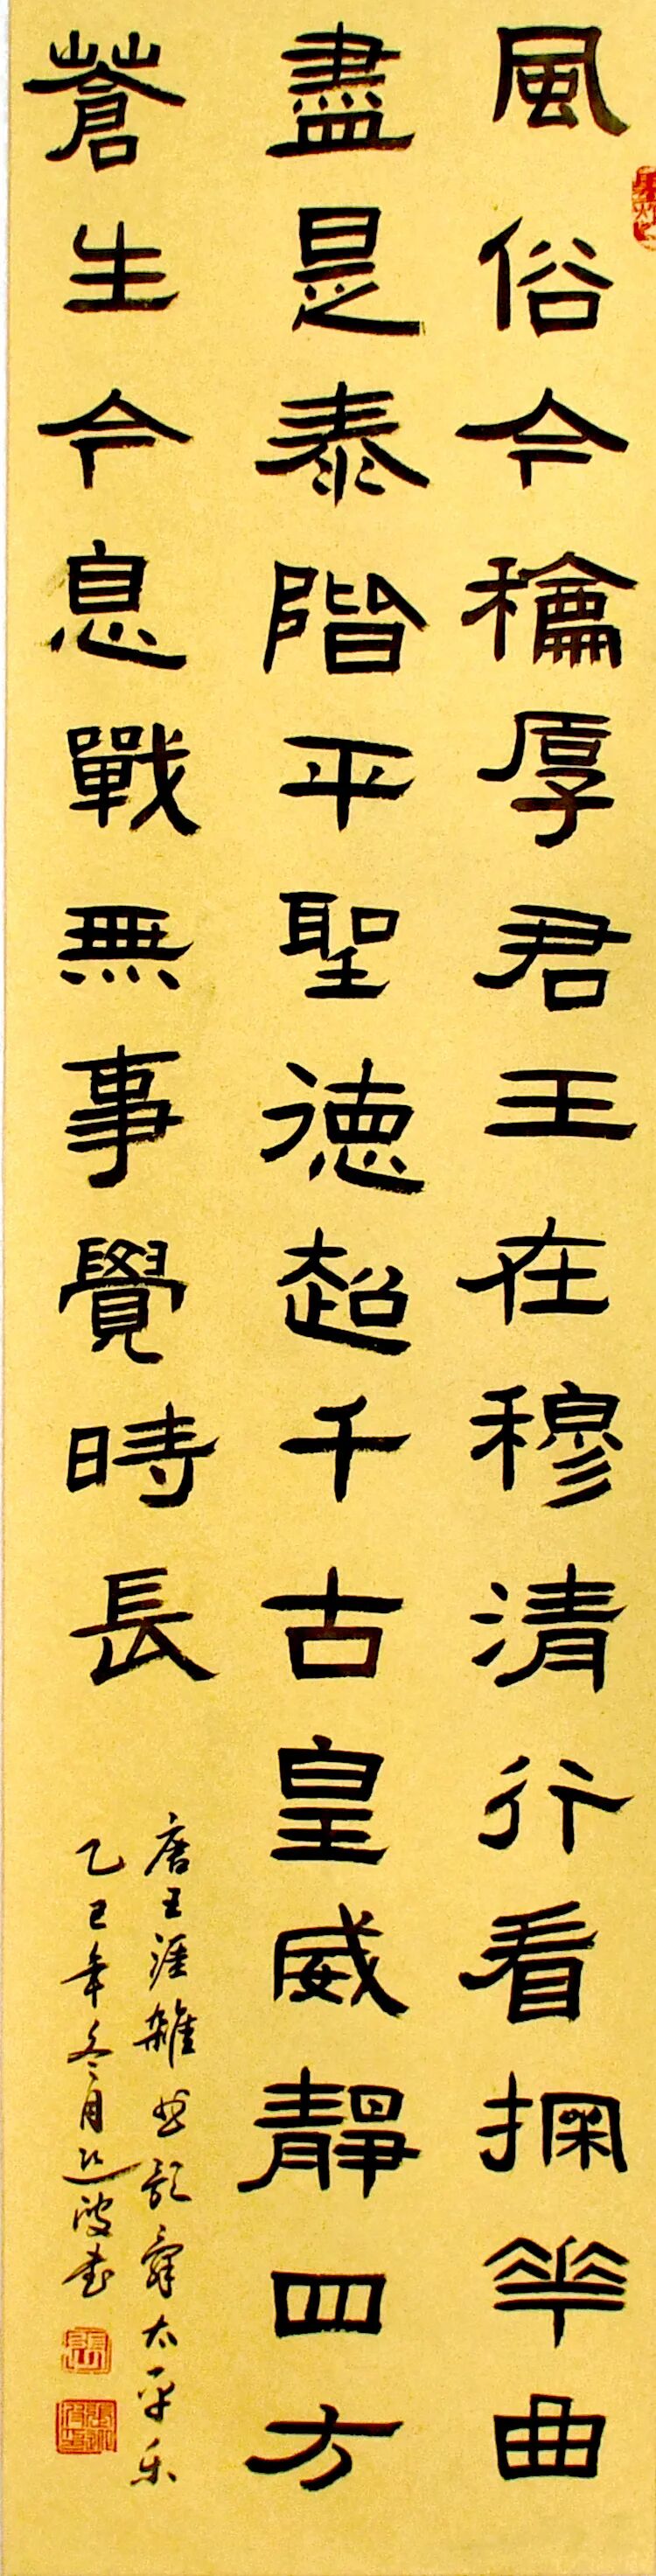 風俗今龢厚君王在穆清行看探華曲
盡是泰階平聖德超千古皇威靜四方
蒼生今息戰無事覺時長
唐王涯雜曲歌辭太平樂
乙巳年冬月波書